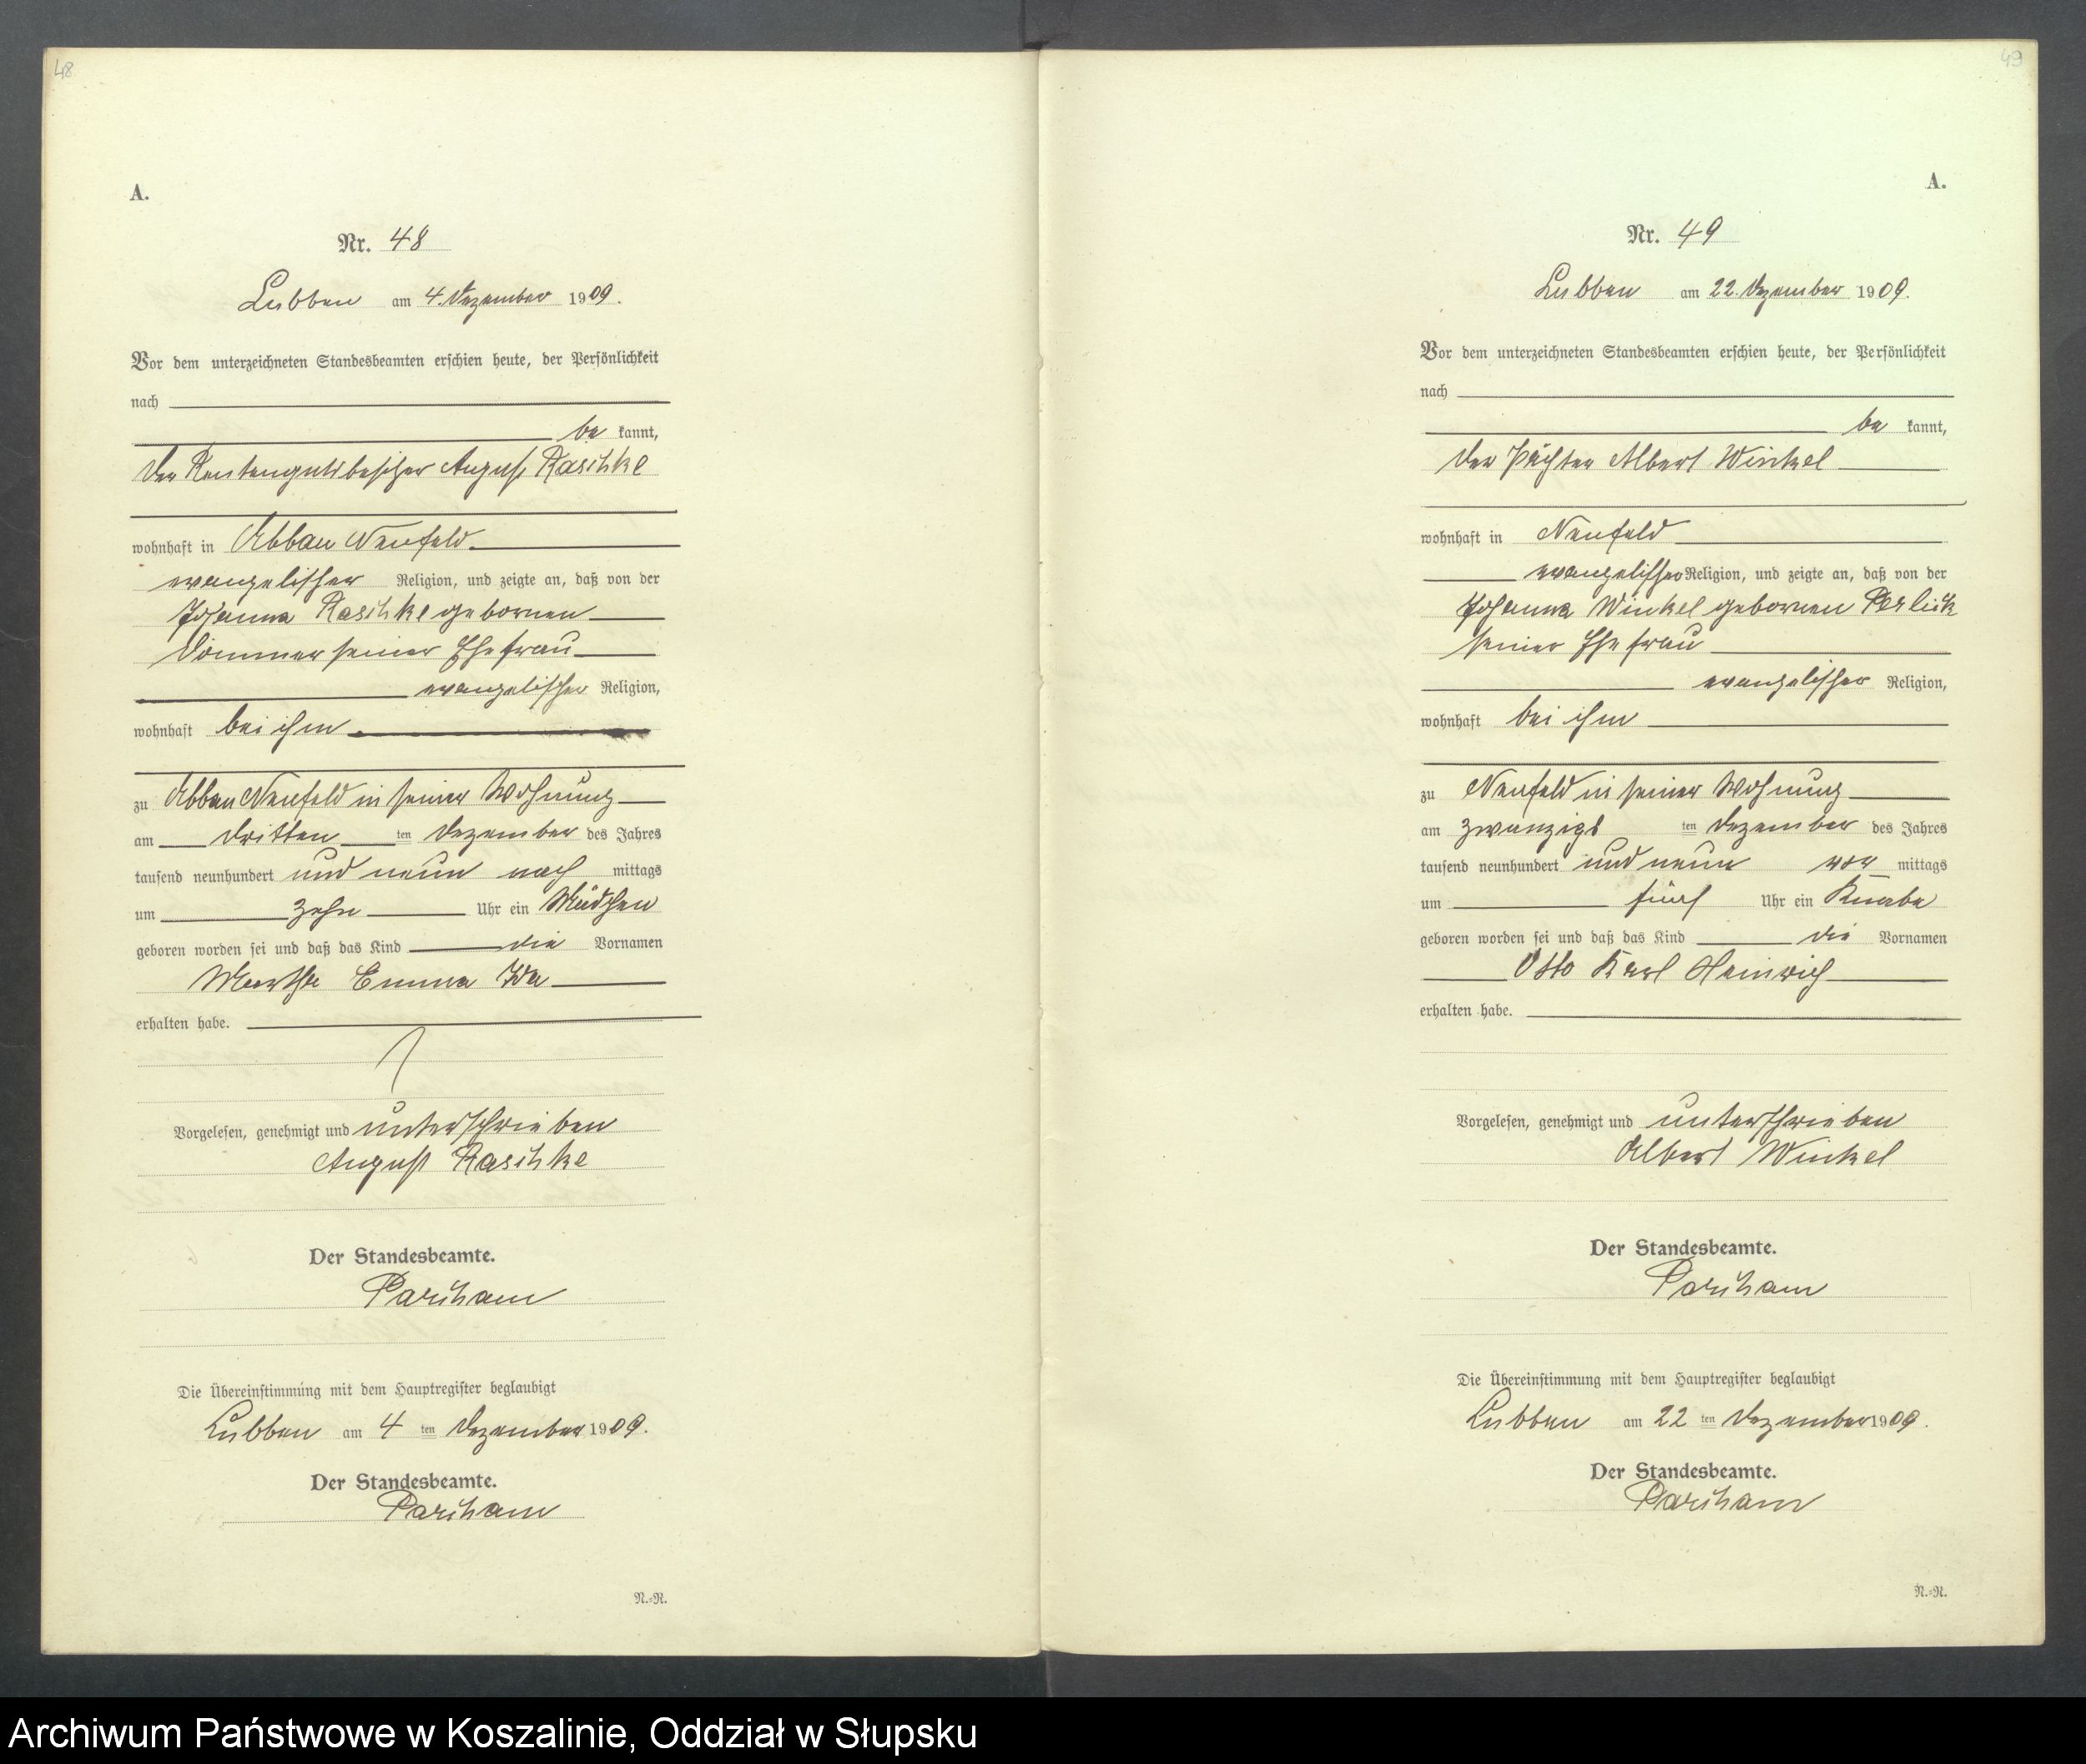 48
A.
Nr. 48
Lubben am 4. Dezember 1909.
Vor dem unterzeichneten Standesbeamten erschien heute, der Persönlichkeit
nach
be kannt,
der Rentengutsbesitzer August Raschke
wohnhaft in Abbau Neufeld
evangelischer Religion, und zeigte an, daß von der
Johanna Raschke gebornen
Dommer seiner Ehefrau
evangelischer Religion,
wohnhaft bei ihm
zu Abbau Neufeld in seiner Wohnung
am dritten ten Dezember des Jahres
tausend neunhundert und neun nach mittags
um zehn Uhr ein Mädchen
geboren worden sei und daß das Kind die Vornamen
Martha Emma Ida
erhalten habe.
Vorgelesen, genehmigt und unterschrieben
August Raschke
Der Standesbeamte.
Parcham
Die Übereinstimmung mit dem Hauptregister beglaubigt
Lubben am 4 ten Dezember 1909.
Der Standesbeamte.
Parcham
N.-R.
49
A.
Nr. 49
Lubben am 22. Dezember 1909.
Vor dem unterzeichneten Standesbeamten erschien heute, der Persönlichkeit
nach
be kannt,
der Pächter Albert Winkel
wohnhaft in Neufeld
evangelischer Religion, und zeigte an, daß von der
Johanna Winkel gebornen Perlick
seiner Ehefrau
evangelischer Religion,
wohnhaft bei ihm
zu Neufeld in seiner Wohnung
am zwanzigs ten Dezember des Jahres
tausend neunhundert und neun vor mittags
um fünf Uhr ein Knabe
geboren worden sei und daß das Kind die Vornamen
Otto Karl Heinrich
erhalten habe.
Vorgelesen, genehmigt und unterschrieben
Albert Winkel
Der Standesbeamte.
Parcham
Die Übereinstimmung mit dem Hauptregister beglaubigt
Lubben am 22 ten Dezember 1909.
Der Standesbeamte.
Parcham
N.-R.
Archiwum Państwowe w Koszalinie, Oddział w Słupsku